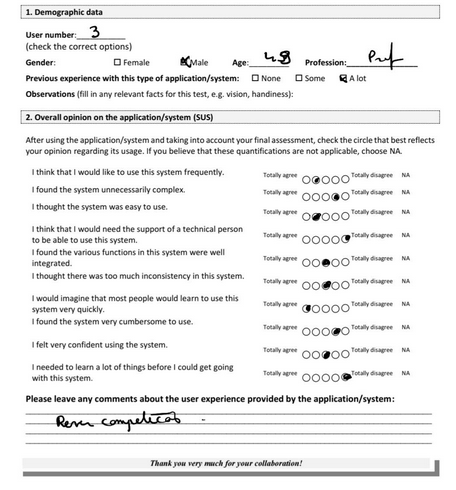 1. Demographic data
User number: 3
(check the correct options)
Gender: Female Male Age: 48 Profession: Prof
Previous experience with this type of application/system: None Some A lot
Observations (fill in any relevant facts for this test, e.g. vision, handiness):
2. Overall opinion on the application/system (SUS)
After using the application/system and taking into account your final assessment, check the circle that best reflects
your opinion regarding its usage. If you believe that these quantifications are not applicable, choose NA.
I think that I would like to use this system frequently. Totally agree Totally disagree NA
I found the system unnecessarily complex. Totally agree Totally disagree NA
I thought the system was easy to use. Totally agree Totally disagree NA
I think that I would need the support of a technical person
to be able to use this system. Totally agree Totally disagree NA
I found the various functions in this system were well
integrated. Totally agree Totally disagree NA
I thought there was too much inconsistency in this system. Totally agree Totally disagree NA
I would imagine that most people would learn to use this
system very quickly. Totally agree Totally disagree NA
I found the system very cumbersome to use. Totally agree Totally disagree NA
I felt very confident using the system. Totally agree Totally disagree NA
I needed to learn a lot of things before I could get going
with this system. Totally agree Totally disagree NA
Please leave any comments about the user experience provided by the application/system:
Thank you very much for your collaboration!